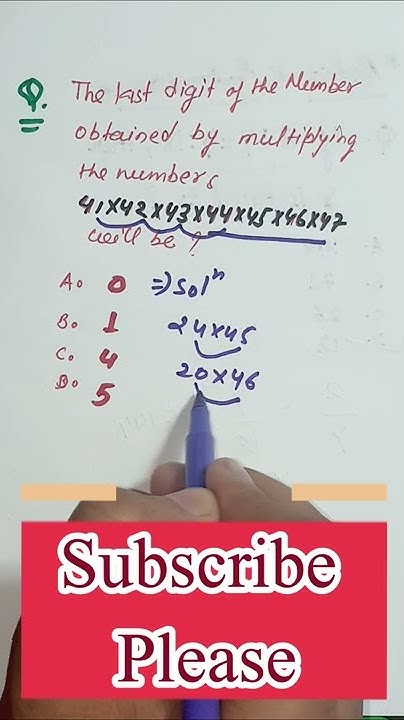 Q. The last digit of the Number
obtained by multiplying
the numbers
41×42×43×44×45×46×47
will be ?
A. 0 ⇒ Solⁿ
B. 1 24×45
C. 4 20×46
D. 5
Subscribe
Please